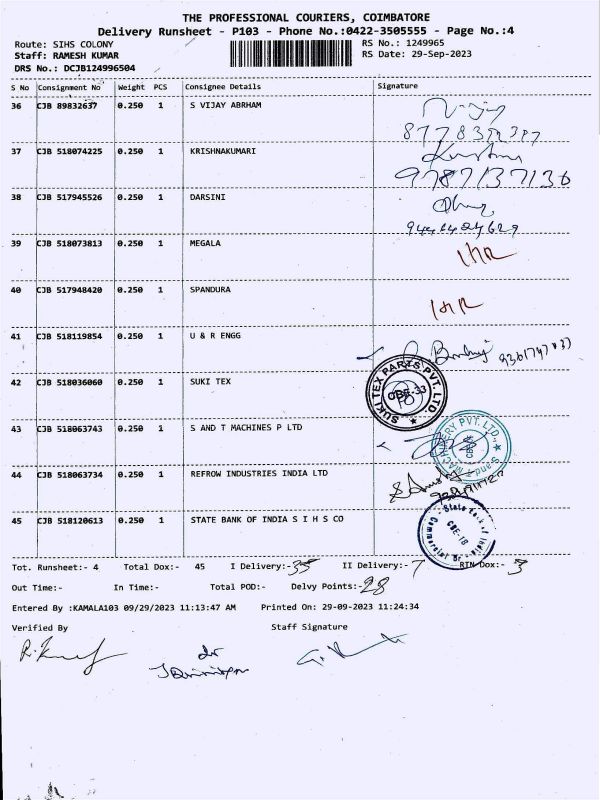 THE PROFESSIONAL COURIERS, COIMBATORE
Delivery Runsheet - P103 - Phone No.:0422-3505555 - Page No.:4
Route: SIHS COLONY RS No.: 1249965
Staff: RAMESH KUMAR RS Date: 29-Sep-2023
DRS No.: DCJB124996504
S No Consignment No Weight PCS Consignee Details Signature
36 CJB 89832637 0.250 1 S VIJAY ABRHAM
37 CJB 518074225 0.250 1 KRISHNAKUMARI
9787137136
38 CJB 517945526 0.250 1 DARSINI
39 CJB 518073813 0.250 1 MEGALA
40 CJB 517948420 0.250 1 SPANDURA
41 CJB 518119854 0.250 1 U & R ENGG
42 CJB 518036060 0.250 1 SUKI TEX
SUKI TEX PARTS PVT. LTD. CBE-33
43 CJB 518063743 0.250 1 S AND T MACHINES P LTD
44 CJB 518063734 0.250 1 REFROW INDUSTRIES INDIA LTD
45 CJB 518120613 0.250 1 STATE BANK OF INDIA S I H S CO
CBE-18
Tot. Runsheet:- 4 Total Dox:- 45 I Delivery:- 35 II Delivery:- 7 RTN Dox:- 3
Out Time:- In Time:- Total POD:- Delvy Points:- 28
Entered By :KAMALA103 09/29/2023 11:13:47 AM Printed On: 29-09-2023 11:24:34
Verified By Staff Signature